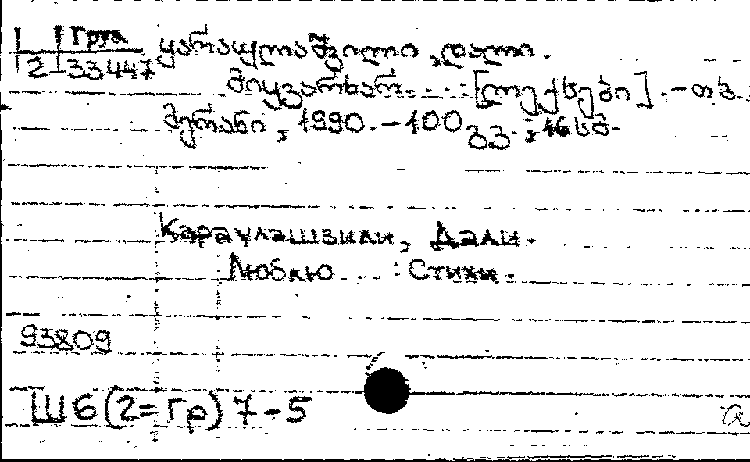 Груз
2-33447
ყარაულაშვილი, დალი.
მიყვარხარ... : [ლექსები]. - თბ.:
მერანი, 1990. - 100 გვ.; 16 სმ.
Караулашвили, Дали.
Люблю ... : Стихи.
93809
Ш6(2=Гр)7-5
а